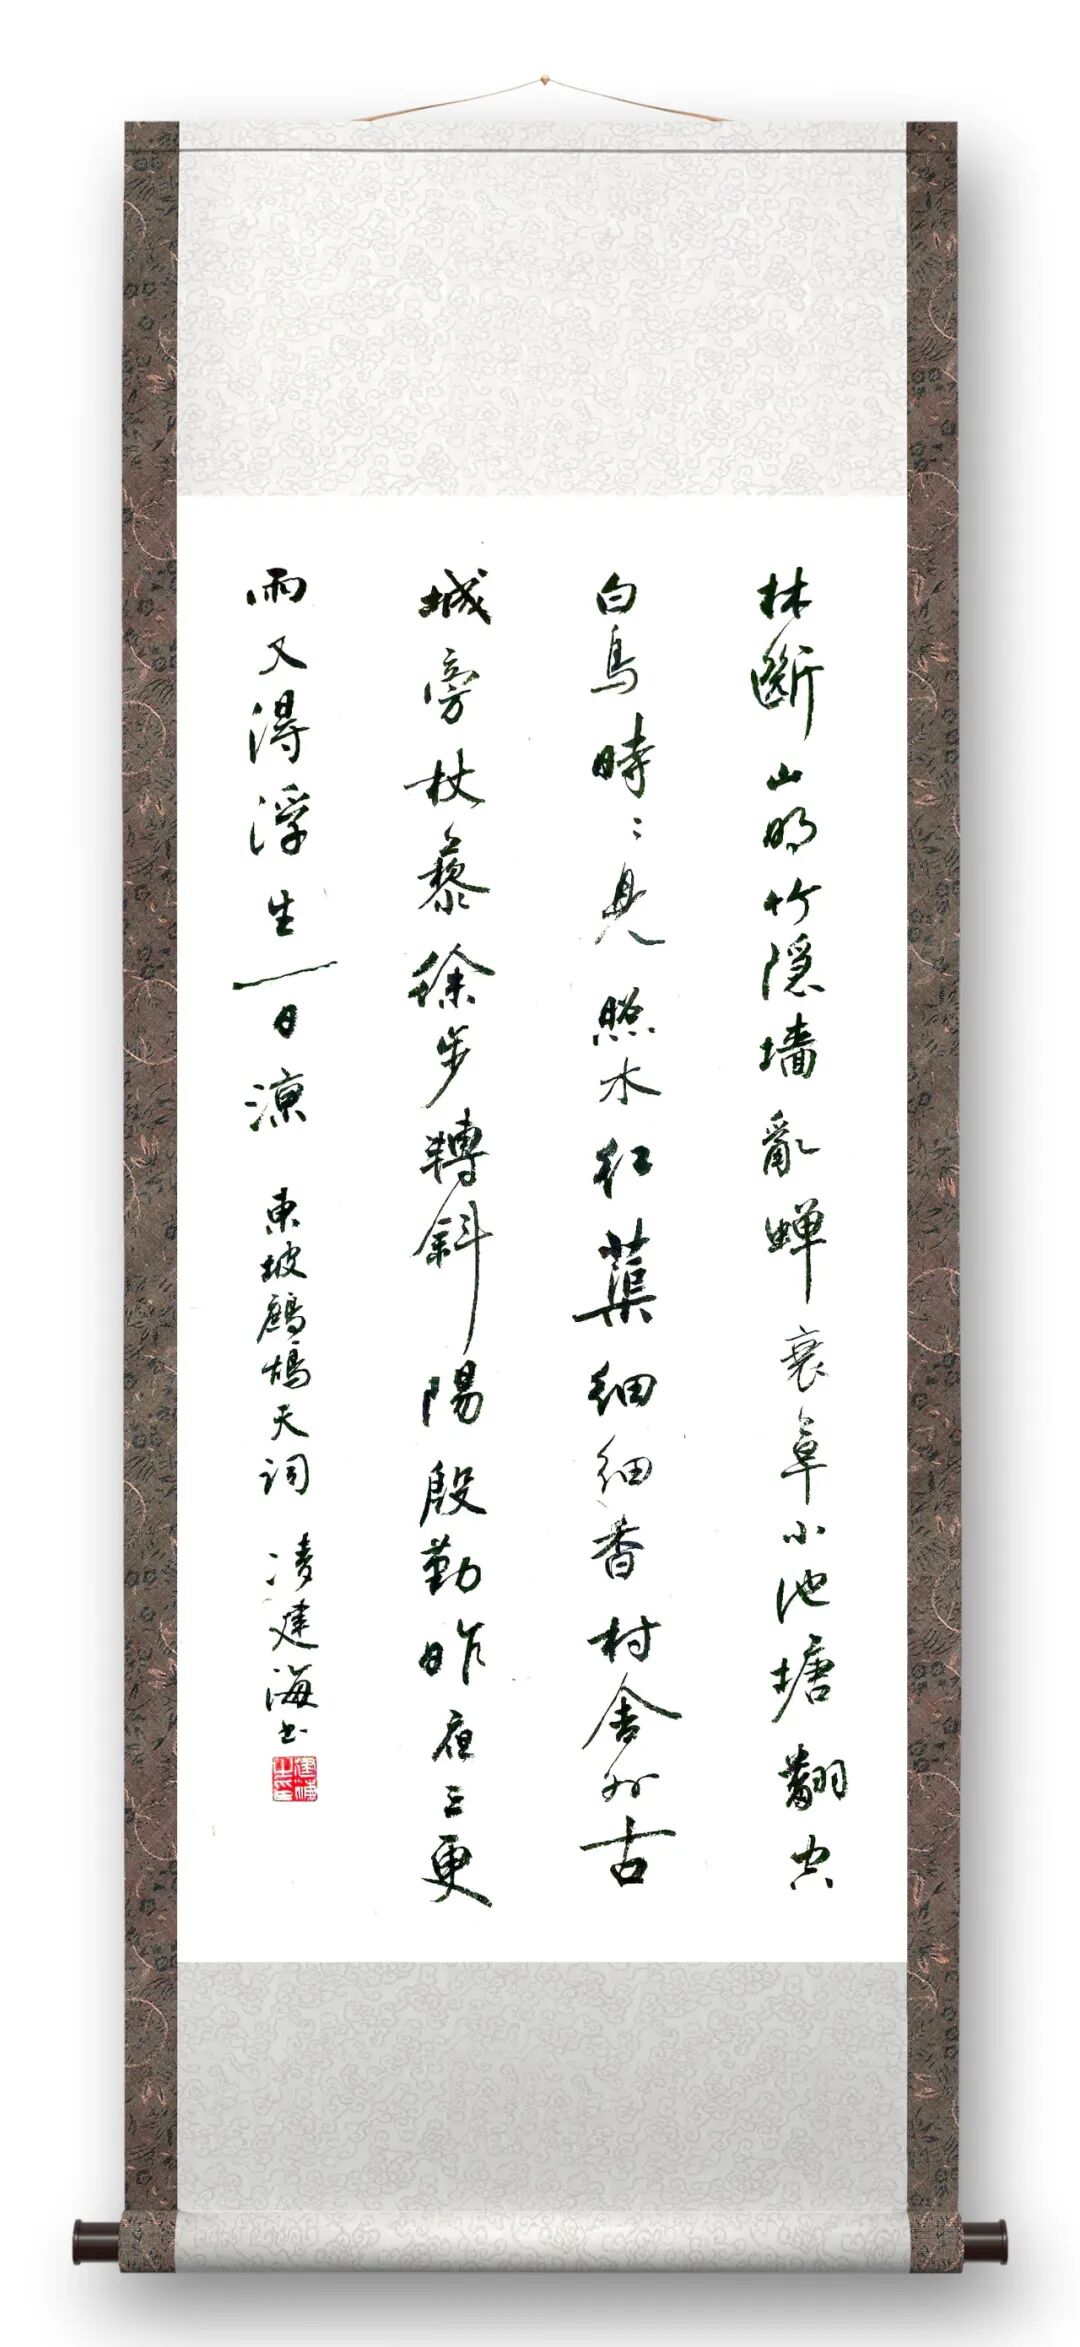 林斷山明竹隱墙亂蟬衰草小池塘翻空
白鳥時〻見照水红蕖细细香村舍外古
城旁杖藜徐步轉斜陽殷勤昨夜三更
雨又得浮生一日涼 東坡鷓鴣天詞 凌建海书
建海之印